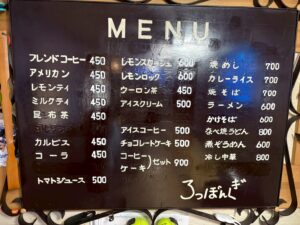 MENU
ブレンドコーヒー 450
アメリカン 450
レモンティ 450
ミルクティ 450
昆布茶 450
カルピス 450
コーラ 450
トマトジュース 500
レモンスカッシュ 600
レモンロック 600
ウーロン茶 450
アイスクリーム 500
アイスコーヒー 500
チョコレートケーキ 500
コーヒー
ケーキ セット 900
焼めし 700
カレーライス 700
焼そば 700
ラーメン 600
かけそば 600
なべ焼うどん 800
煮ぞうめん 600
冷し中華 800
ろっぽんぎ